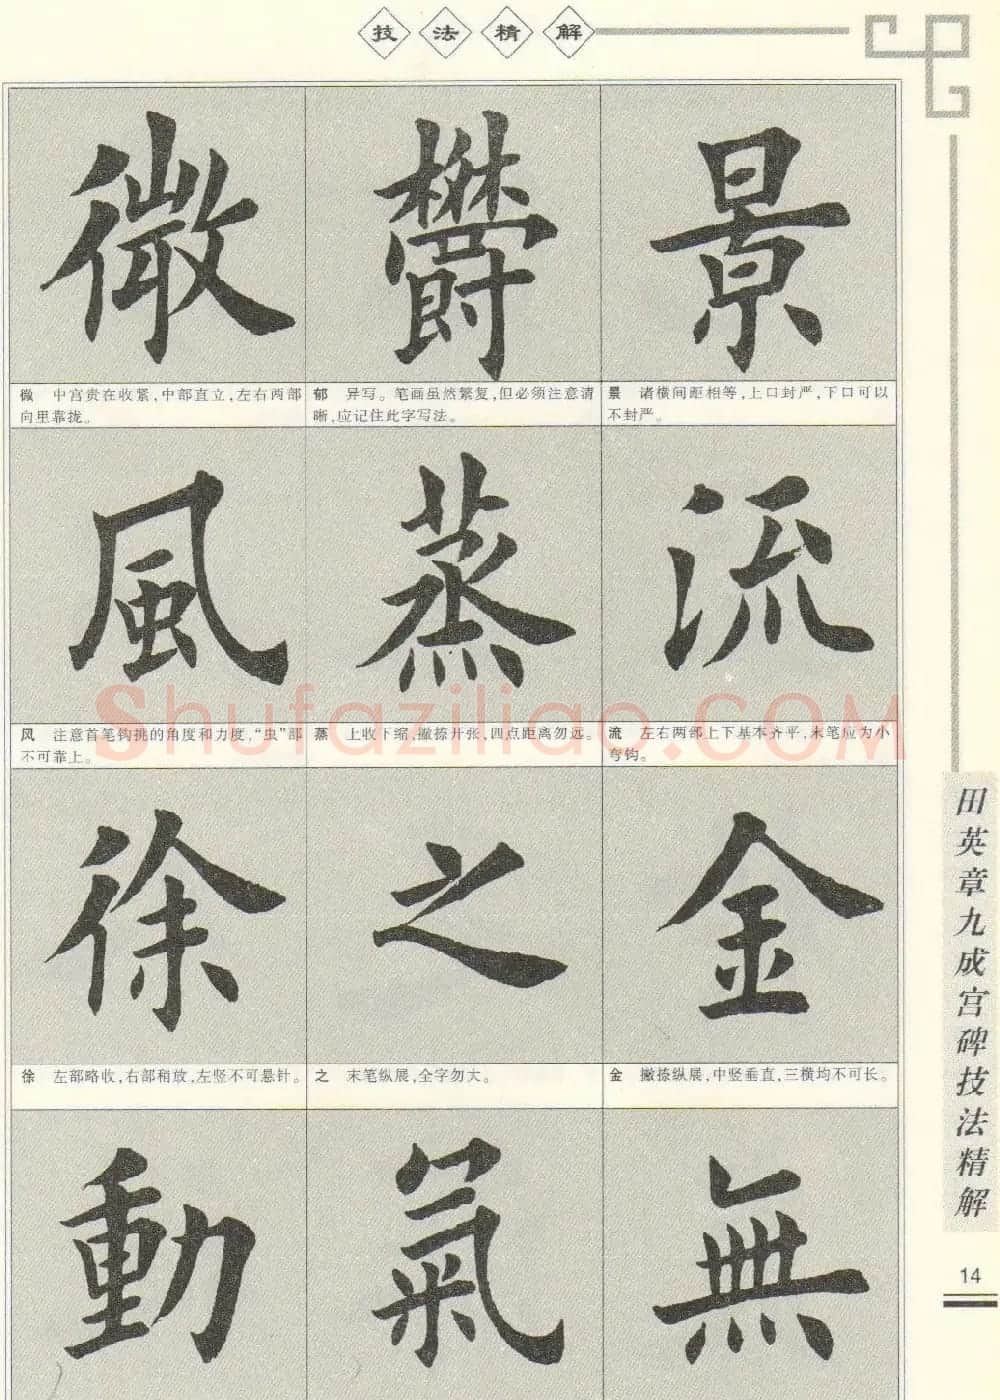 技法精解
微 欝 景
微 中宫贵在收紧,中部直立,左右两部
向里靠拢。
郁 异写。笔画虽然繁复,但必须注意清
晰,应记住此字写法。
景 诸横间距相等,上口封严,下口可以
不封严。
風 蒸 流
风 注意首笔钩挑的角度和力度,“虫”部
不可靠上。
蒸 上收下缩,撇捺开张,四点距离勿远。
流 左右两部上下基本齐平,末笔应为小
弯钩。
Shufaziliao.COM
徐 之 金
徐 左部略收,右部稍放,左竖不可悬针。
之 末笔纵展,全字勿大。
金 撇捺纵展,中竖垂直,三横均不可长。
動 氣 無
田英章九成宫碑技法精解
14